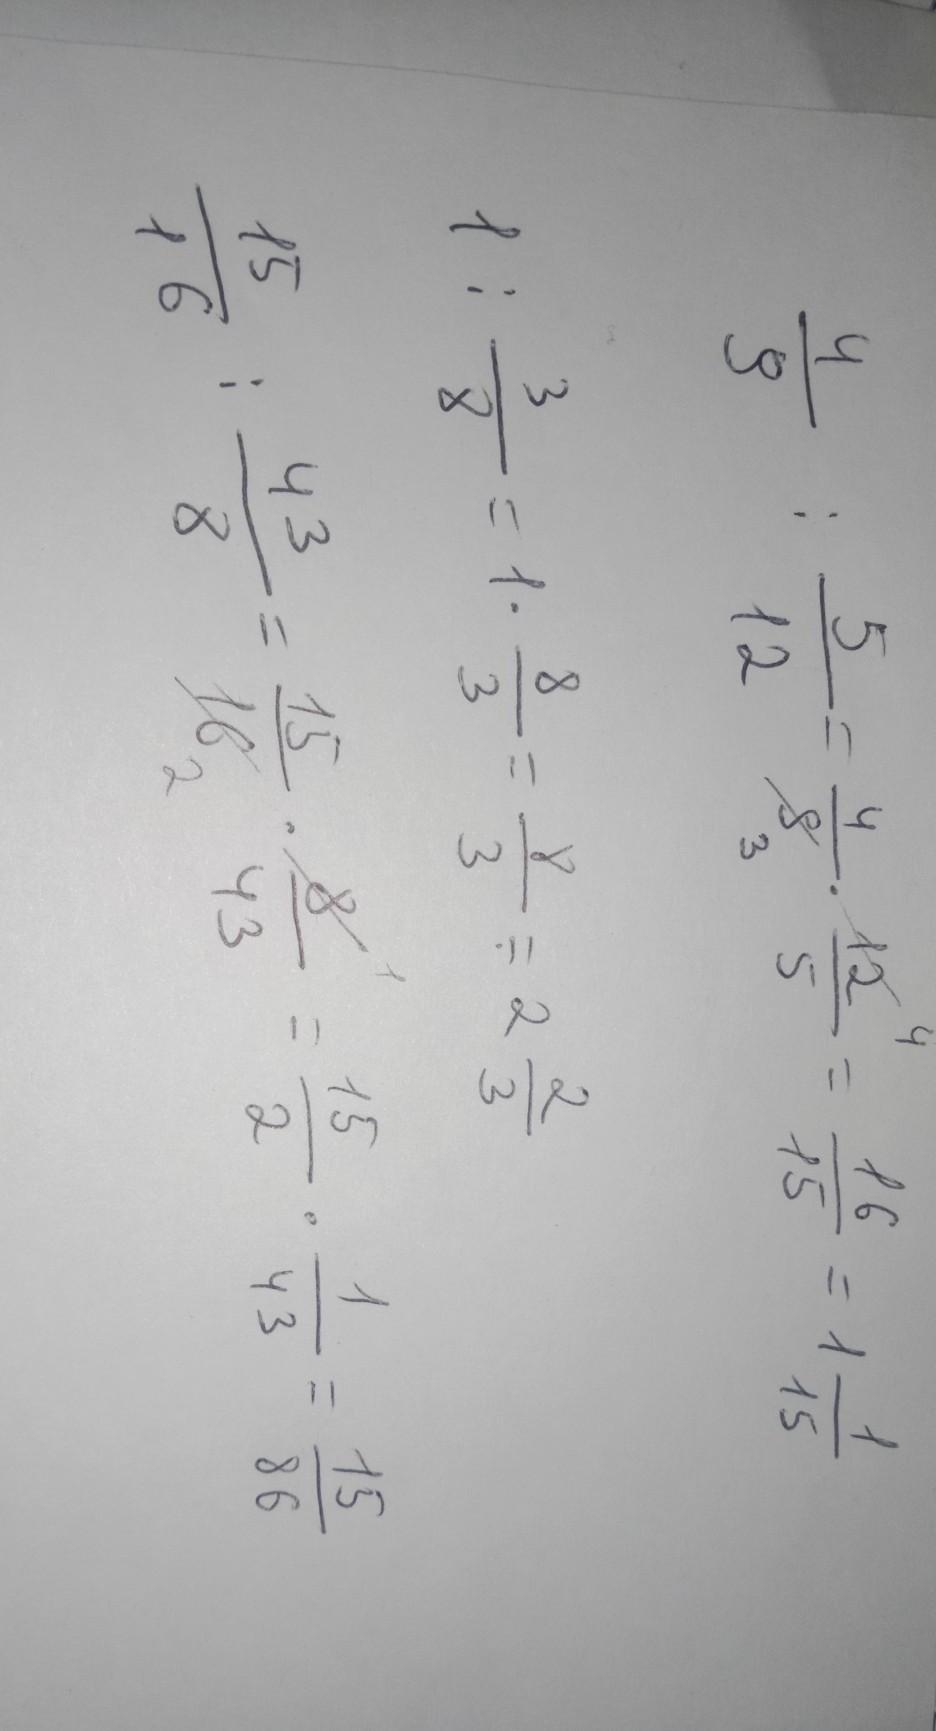 4/9 : 5/12 = 4/9 3 · 12/5 4 = 16/15 = 1 1/15
1 : 3/8 = 1 · 8/3 = 8/3 = 2 2/3
15/16 : 43/8 = 15/16 2 · 8/43 1 = 15/2 · 1/43 = 15/86